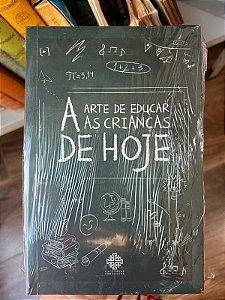 1+2=3
π=3,14
A ARTE DE EDUCAR
AS CRIANÇAS
DE HOJE